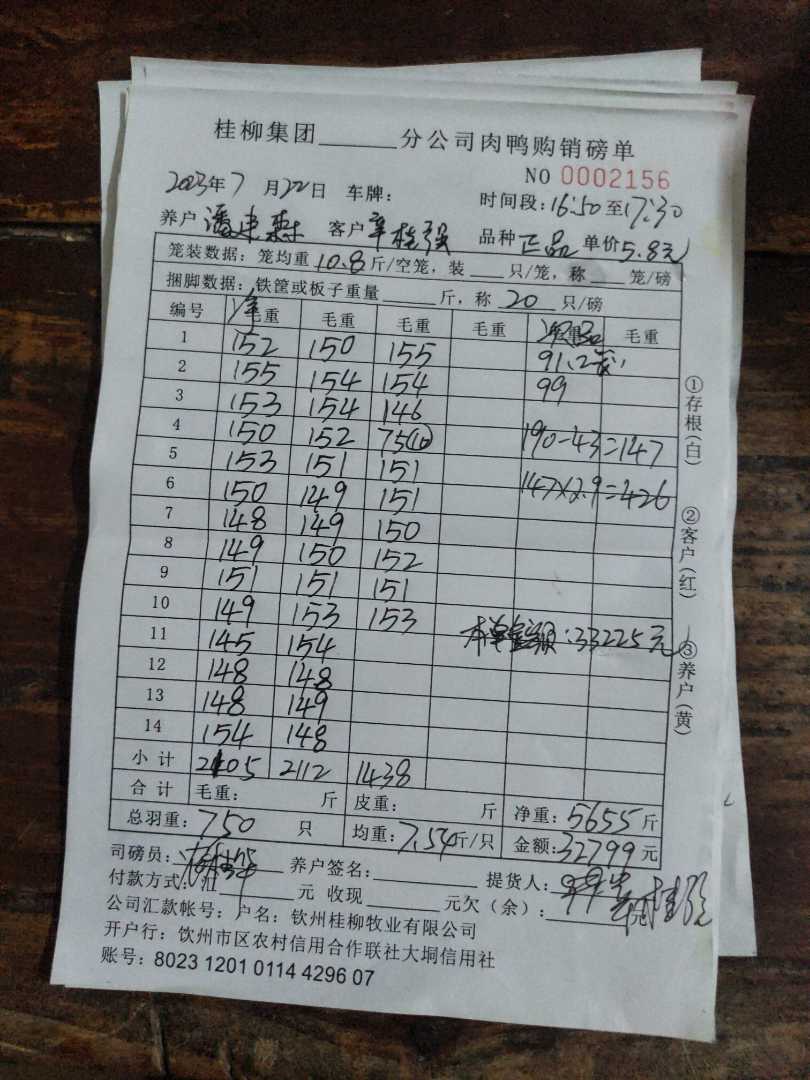 桂柳集团______分公司肉鸭购销磅单
NO 0002156
2023年7月22日 车牌: 时间段:16:50至17:30
养户 潘 客户 强 品种 正品 单价5.8元
笼装数据: 笼均重10.8斤/空笼, 装___只/笼, 称___笼/磅
捆脚数据: 铁筐或板子重量______斤, 称 20 只/磅
编号 净毛重 毛重 毛重 毛重 毛重
1 152 150 155 91.2
2 155 154 154 99
3 153 154 146
4 150 152 75(10) 190-43=147
5 153 151 151
6 150 149 151 147×2.9=426
7 148 149 150
8 149 150 152
9 151 151 151
10 149 153 153
本单金额:33225元
11 145 154
12 148 148
13 148 149
14 154 148
小计 2105 2112 1438
合计 毛重: 斤 皮重: 斤 净重:5655斤
总羽重:750 只 均重:7.54斤/只 金额:32799元
司磅员: 养户签名: 提货人:
付款方式: 汇______元 收现______元欠(余):
公司汇款帐号: 户名: 钦州桂柳牧业有限公司
开户行: 钦州市区农村信用合作联社大垌信用社
账号: 8023 1201 0114 4296 07
①存根(白)
②客户(红)
③养户(黄)